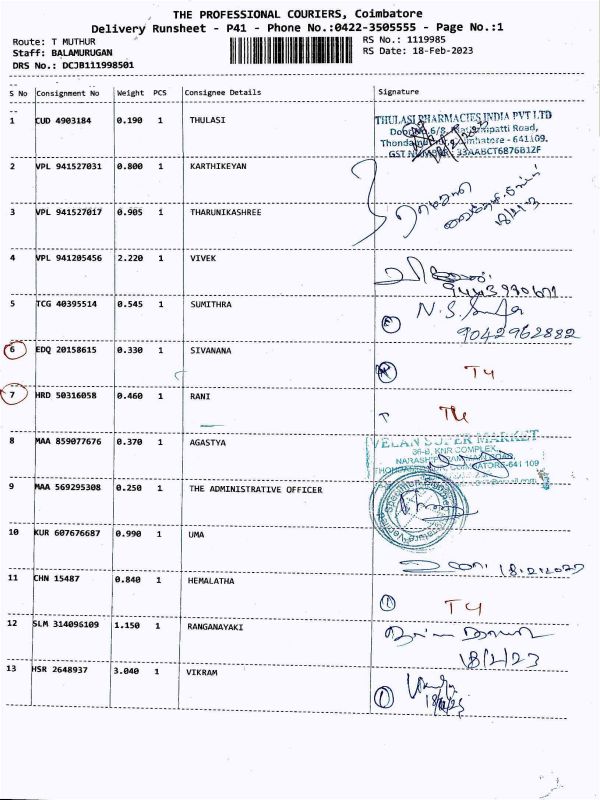 THE PROFESSIONAL COURIERS, Coimbatore
Delivery Runsheet - P41 - Phone No.:0422-3505555 - Page No.:1
Route: T MUTHUR
Staff: BALAMURUGAN
DRS No.: DCJB111998501
RS No.: 1119985
RS Date: 18-Feb-2023
S No Consignment No Weight PCS Consignee Details Signature
1 CUD 4903184 0.190 1 THULASI
THULASI PHARMACIES INDIA PVT LTD
Road,
Coimbatore - 641109.
GST 33AABCT6876B12F
2 VPL 941527031 0.800 1 KARTHIKEYAN
3 VPL 941527017 0.905 1 THARUNIKASHREE
4 VPL 941205456 2.220 1 VIVEK
5 TCG 40395514 0.545 1 SUMITHRA
N.S.
9042962882
6 EDQ 20158615 0.330 1 SIVANANA T4
7 HRD 50316058 0.460 1 RANI T4
8 MAA 859077676 0.370 1 AGASTYA
VELAN SUPER MARKET
36-B, KNR COMPLEX,
COIMBATORE-641 109
9 MAA 569295308 0.250 1 THE ADMINISTRATIVE OFFICER
10 KUR 607676687 0.990 1 UMA
18.2.2023
11 CHN 15487 0.840 1 HEMALATHA T4
12 SLM 314096109 1.150 1 RANGANAYAKI
18/2/23
13 HSR 2648937 3.040 1 VIKRAM